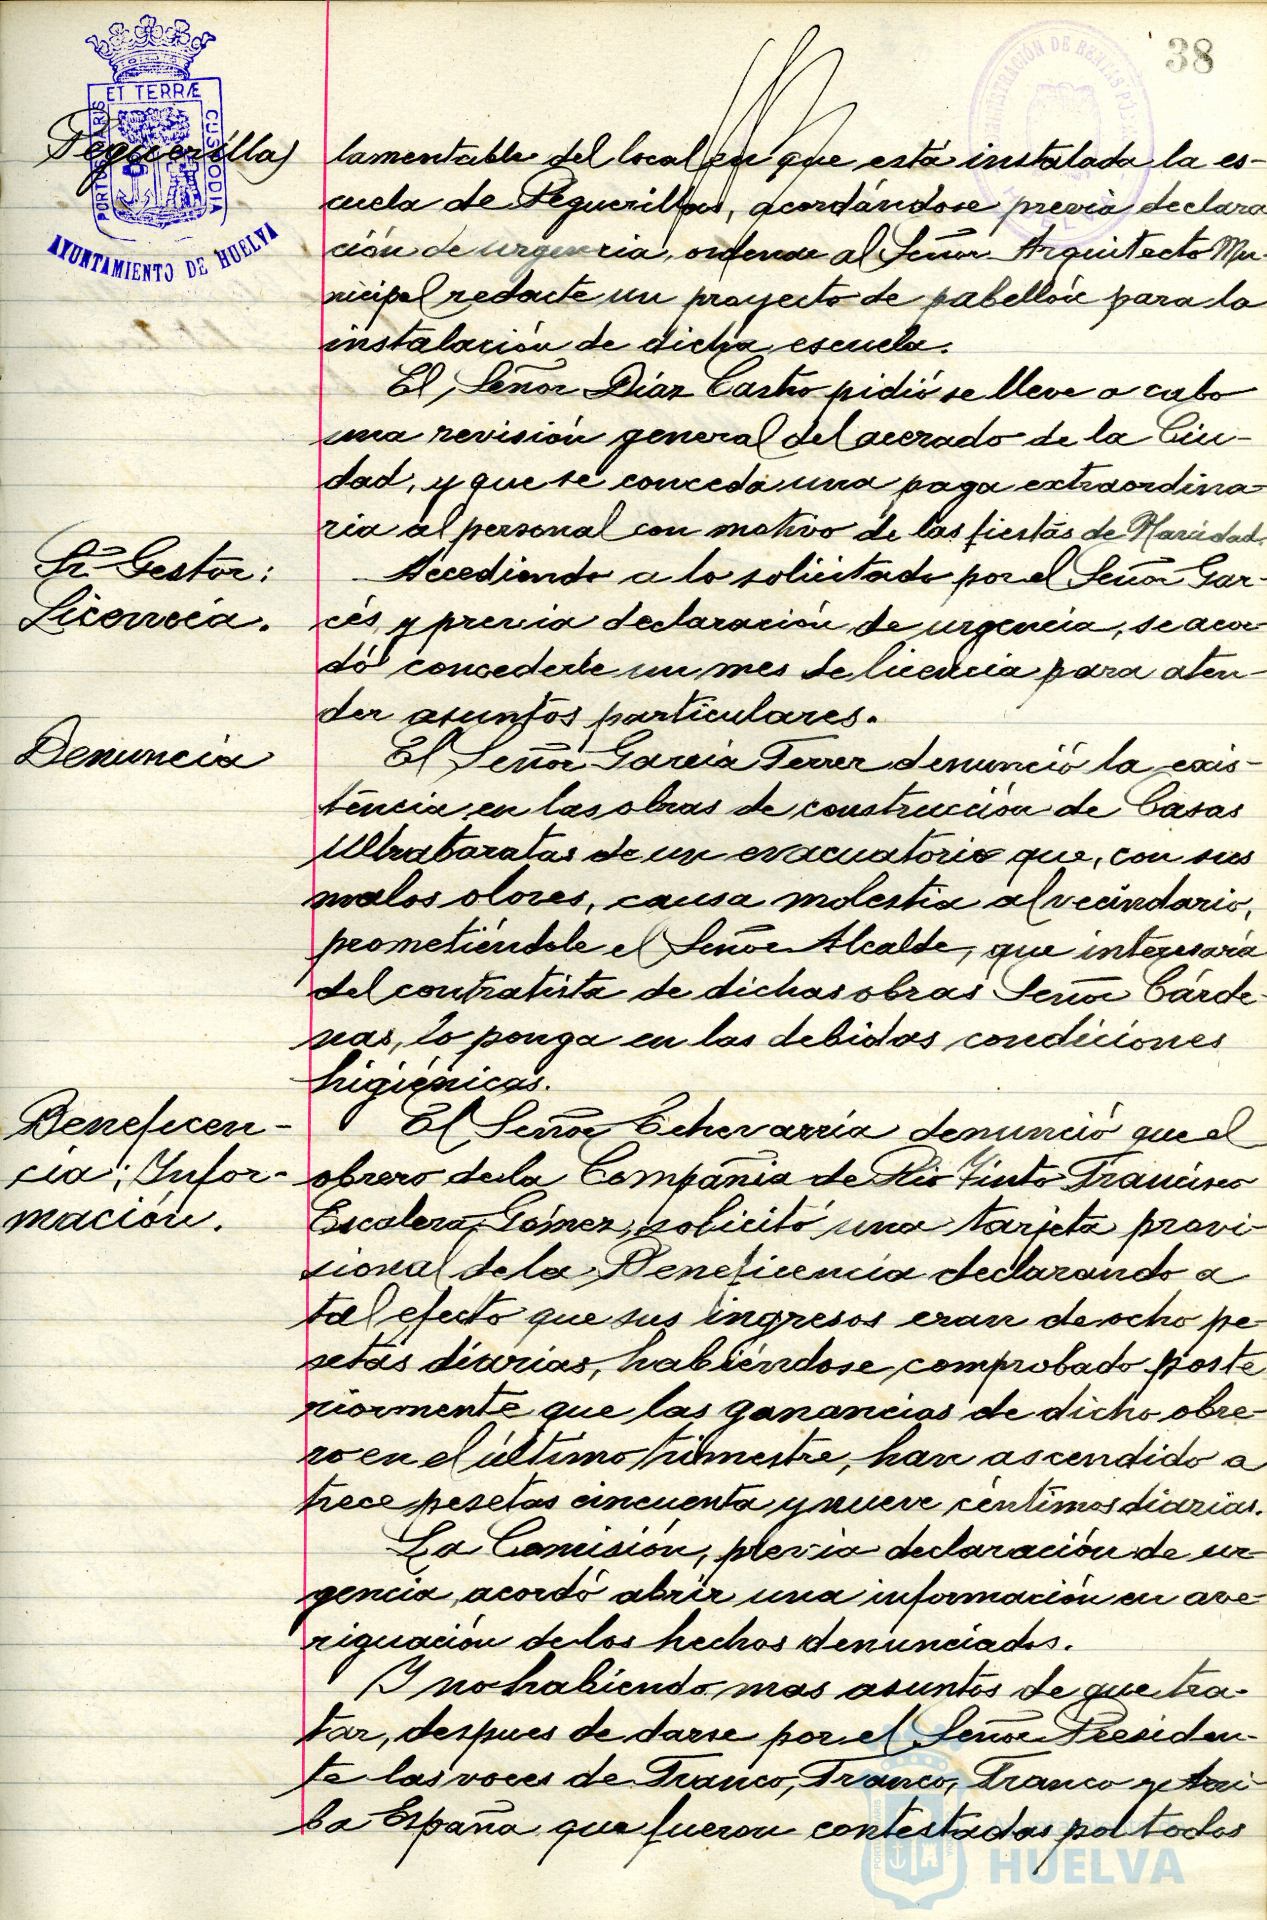 38
PORTUS MARIS ET TERRÆ CUSTODIA
AYUNTAMIENTO DE HUELVA
ADMINISTRACIÓN DE RENTAS PÚB
Peguerillas
lamentable del local en que está instalada la es-
cuela de Peguerillas, acordándose previa declara
ción de urgencia, ordenar al Señor Arquitecto Mu-
nicipal redacte un proyecto de pabellón para la
instalación de dicha escuela.
El Señor Díaz Castro pidió se lleve a cabo
una revisión general del acerado de la Ciu-
dad, y que se conceda una paga extraordina-
ria al personal con motivo de las fiestas de Navidad.
Sr. Gestor:
Licencia.
Accediendo a lo solicitado por el Señor Gar-
cés, y previa declaración de urgencia, se acor-
dó concederle un mes de licencia para aten-
der asuntos particulares.
Denuncia
El Señor García Ferrer denunció la exis-
tencia en las obras de construcción de Casas
Ultrabaratas de un evacuatorio que, con sus
malos olores, causa molestia al vecindario,
prometiéndole el Señor Alcalde, que interesaría
del contratista de dichas obras Señor Cárde-
nas, lo ponga en las debidas condiciones
higiénicas.
Beneficen-
cia; Infor-
mación.
El Señor Echevarría denunció que el
obrero de la Compañia de Rio Tinto Francisco
Escalera Gómez, solicitó una tarjeta provi-
sional de la Beneficencia declarando a
tal efecto que sus ingresos eran de ocho pe-
setas diarias, habiéndose comprobado poste
riormente que las ganancias de dicho obre-
ro en el último trimestre, han ascendido a
trece pesetas cincuenta y nueve céntimos diarias.
La Comisión, previa declaración de ur-
gencia, acordó abrir una información en ave-
riguación de los hechos denunciados.
Y no habiendo mas asuntos de que tra-
tar, despues de darse por el Señor Presiden-
te las voces de Franco, Franco, Franco y Arri-
ba España que fueron contestadas por todos
HUELVA